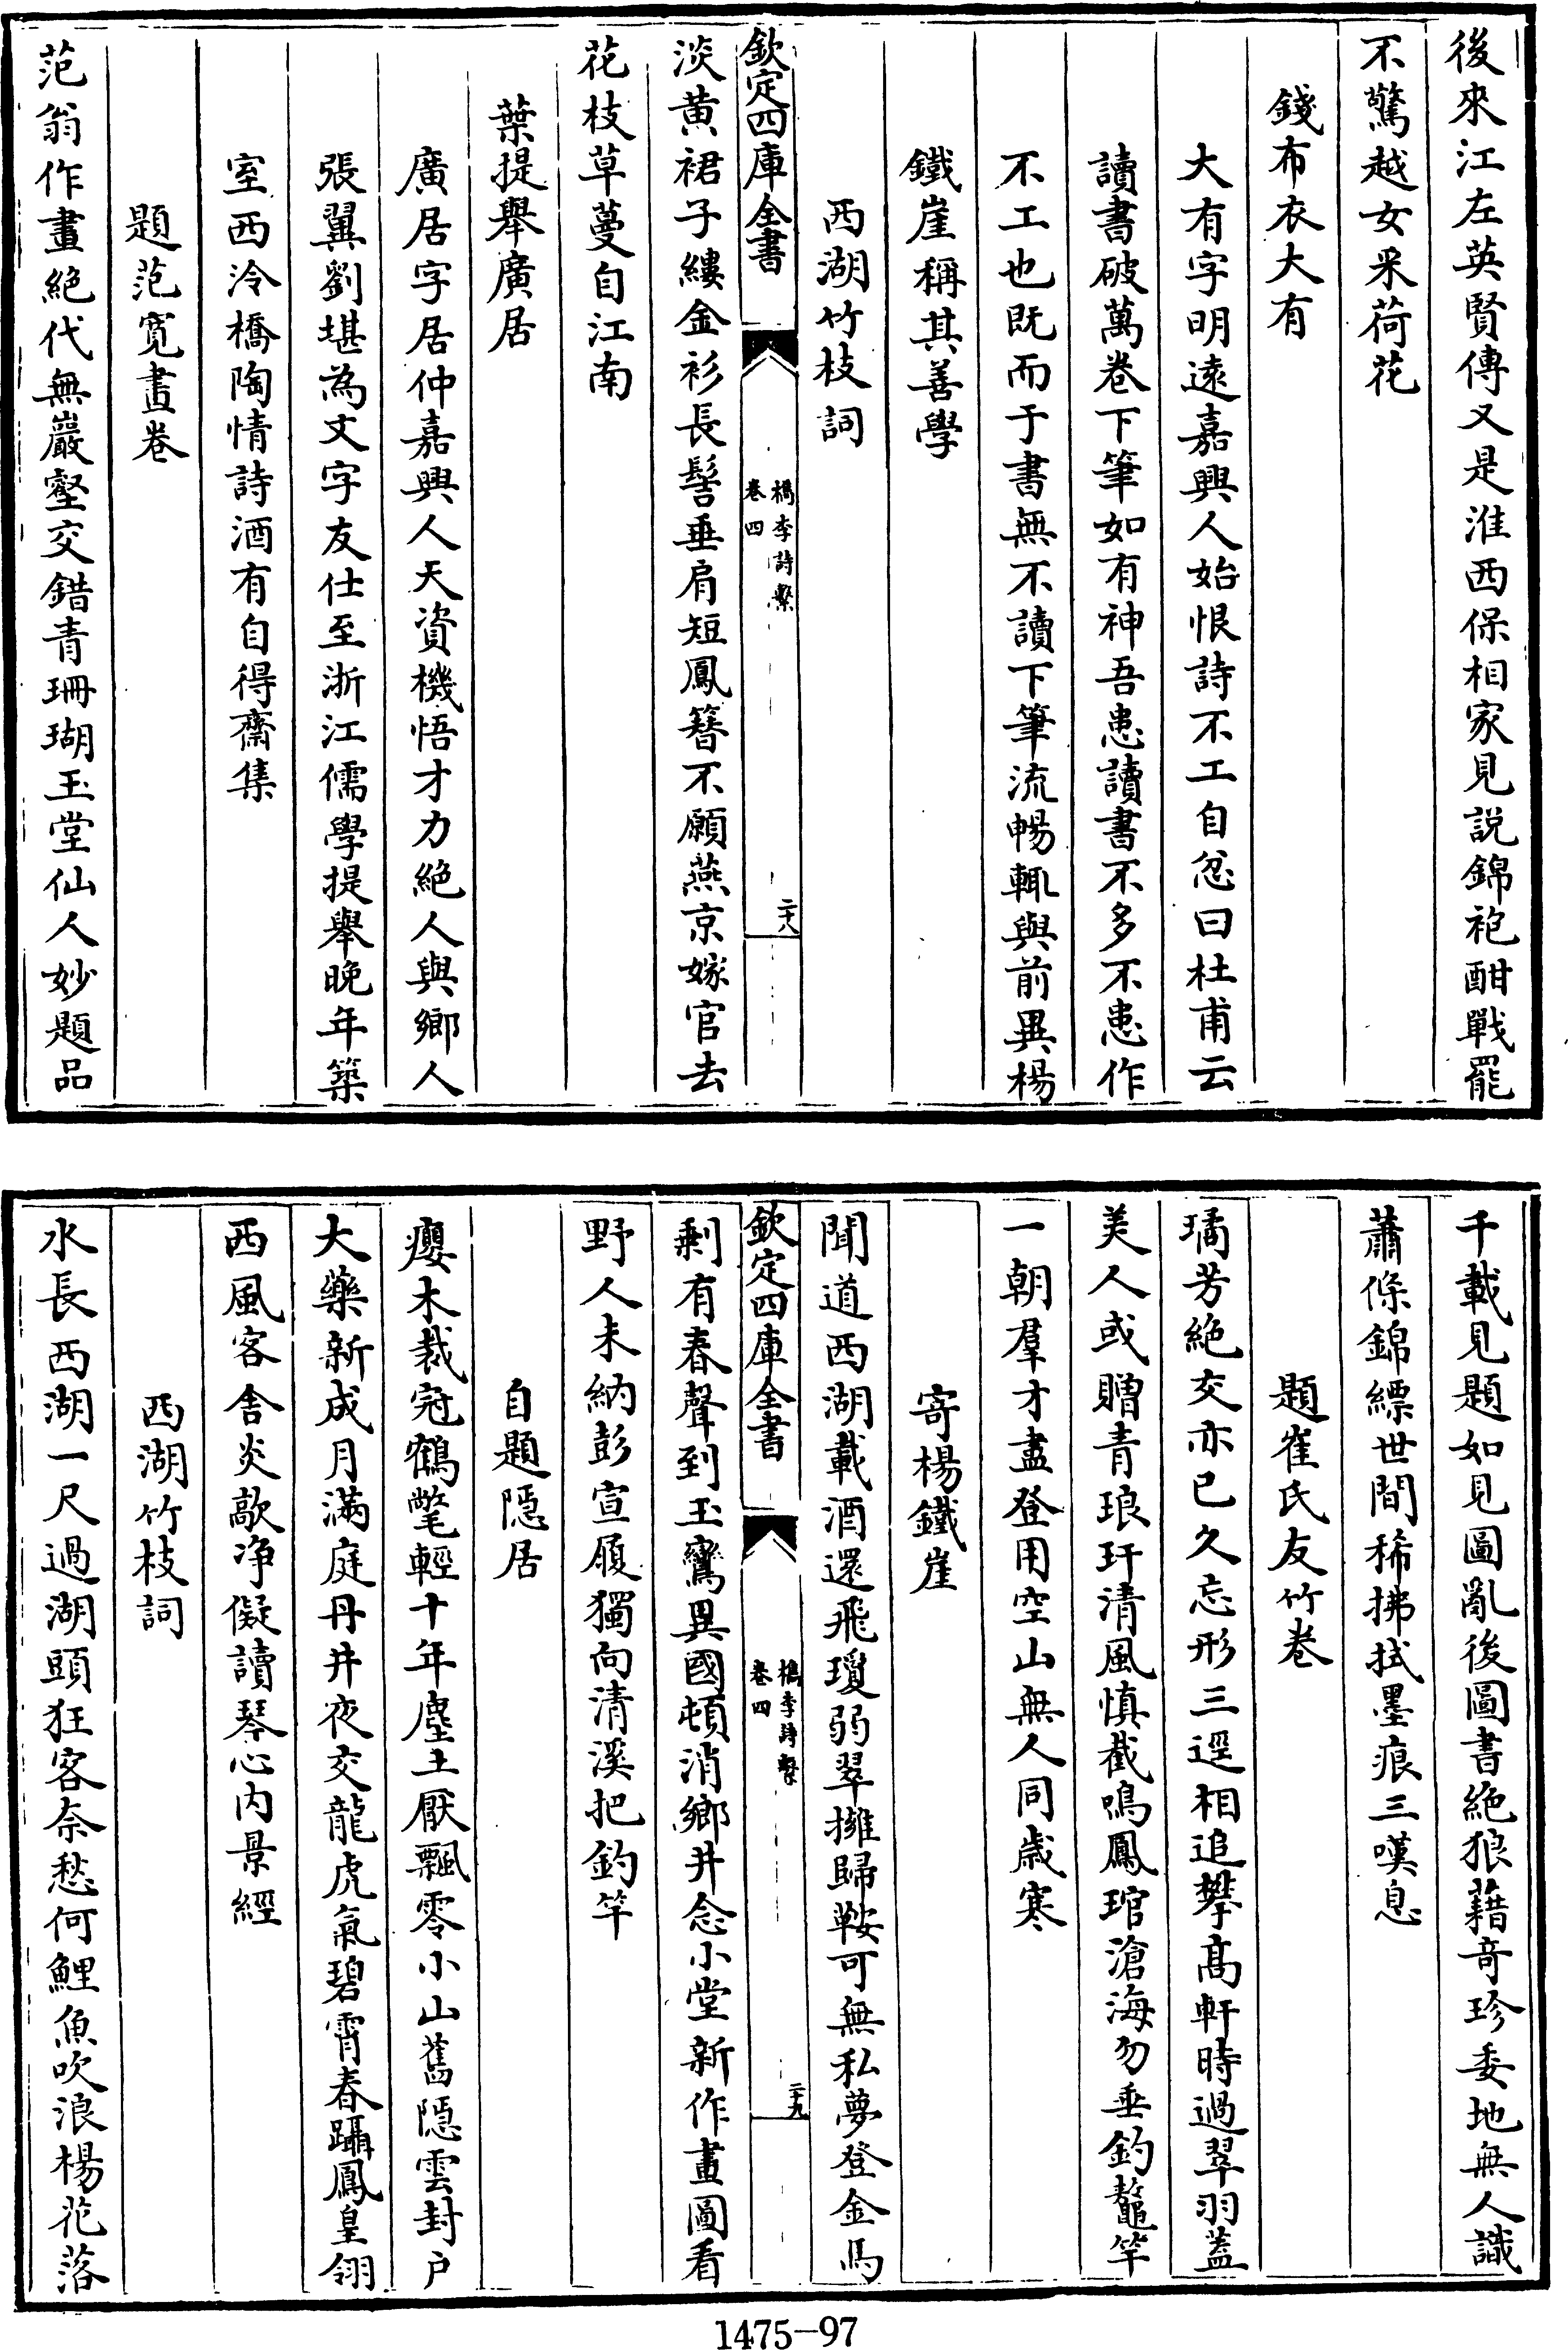 後來江左英賢傳又是淮西保相家見説錦袍酣戰罷
不驚越女采荷花
錢布衣大有
大有字明遠嘉興人始恨詩不工自忿曰杜甫云
讀書破萬卷下筆如有神吾患讀書不多不患作
不工也既而于書無不讀下筆流暢輒與前異楊
鐵崖稱其善學
西湖竹枝詞
欽定四庫全書
檇李詩繫
卷四
二十八
淡黄裙子縷金衫長髻垂肩短鳳簪不願燕京嫁官去
花枝草蔓自江南
葉提舉廣居
廣居字居仲嘉興人天資機悟才力絶人與鄉人
張翼劉堪為文字友仕至浙江儒學提舉晚年築
室西泠橋陶情詩酒有自得齋集
題范寛畫卷
范翁作畫絶代無巖壑交錯青珊瑚玉堂仙人妙題品
千載見題如見圖亂後圖書絶狼藉奇珍委地無人識
蕭條錦縹世間稀拂拭墨痕三嘆息
題崔氏友竹卷
璚芳絶交亦已久忘形三逕相追攀髙軒時過翠羽蓋
美人或贈青琅玕清風慎截鳴鳳琯滄海勿垂釣鼇竿
一朝羣才盡登用空山無人同歳寒
寄楊鐵崖
聞道西湖載酒還飛瓊弱翠擁歸鞍可無私夢登金馬
欽定四庫全書
檇李詩繫
卷四
二十九
剩有春聲到玉鸞異國頓消鄉井念小堂新作畫圖看
野人未納彭宣履獨向清溪把釣竿
自題隱居
癭木裁冠鶴氅輕十年塵土厭飄零小山舊隱雲封戸
大藥新成月滿庭丹井夜交龍虎氣碧霄春躡鳳皇翎
西風客舍炎歊净儗讀琴心内景經
西湖竹枝詞
水長西湖一尺過湖頭狂客奈愁何鯉魚吹浪楊花落
1475-97